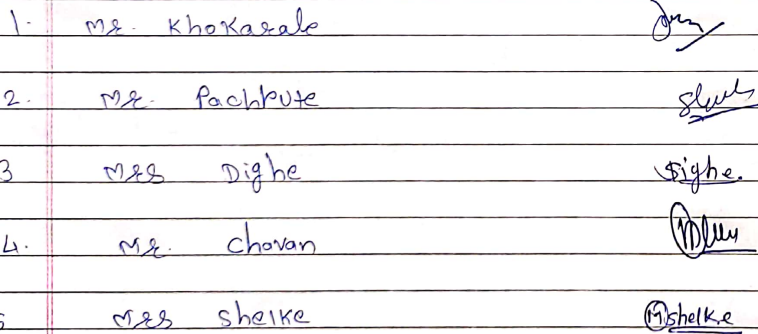 1. Mr. Khokarale
2. Mr. Pachpute
3 Mrs Dighe Dighe.
4. Mr. Chovan
5 Mrs Shelke Mshelke